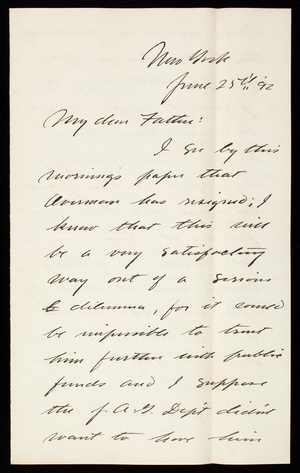 New York
June 25th '92
My dear Father:
I see by this
mornings paper that
Overman has resigned; I
know that this will
be a very satisfactory
way out of a serious
dilemma, for it would
be impossible to trust
him further with public
funds and I suppose
the J.A.G. Dep't didn't
want to have him